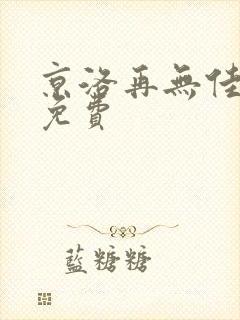 京洛再無佳
免費
藍糖糖